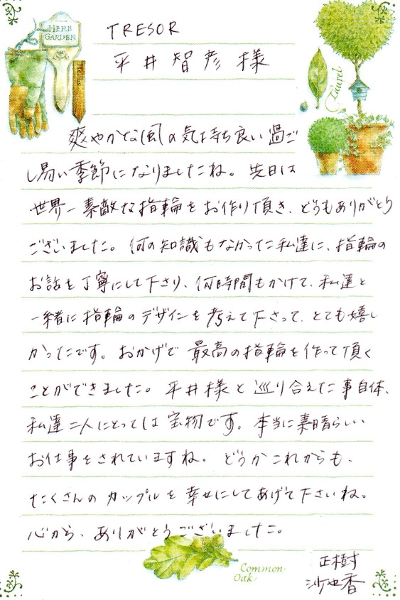 HERB GARDEN
TRESOR
平井智彦様
Laurel
爽やかな風の気持ち良い過ご
し易い季節になりましたね。先日は
世界一素敵な指輪をお作り頂き、どうもありがとう
ございました。何の知識もなかった私達に、指輪の
お話を丁寧にして下さり、何時間もかけて、私達と
一緒に指輪のデザインを考えて下さって、とても嬉し
かったです。おかげで最高の指輪を作って頂く
ことができました。平井様と巡り合えた事自体、
私達二人にとっては宝物です。本当に素晴らしい
お仕事をされていますね。どうかこれからも、
たくさんのカップルを幸せにしてあげて下さいね。
心から、ありがとうございました。
正樹
沙也香
Common Oak